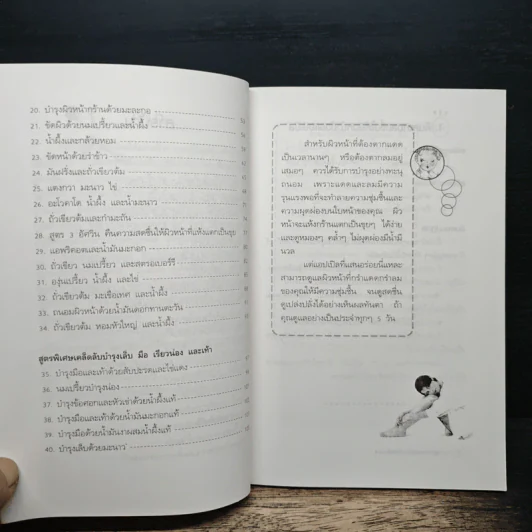 20. บำรุงผิวหน้ากร้านด้วยมะละกอ
21. ขัดผิวด้วยนมเปรี้ยวและน้ำผึ้ง
22. น้ำผึ้งและกล้วยหอม
23. ขัดหน้าด้วยรำข้าว
24. มันฝรั่งและถั่วเขียวต้ม
25. แตงกวา มะนาว ไข่
26. อะโวคาโด น้ำผึ้ง และน้ำมะนาว
27. ถั่วเขียวต้มและกำมะถัน
28. สูตร 3 อัศวิน คืนความสดชื่นให้ผิวหน้าที่แห้งแตกเป็นขุย
29. แอพริคอตและน้ำมันมะกอก
30. ถั่วเขียว นมเปรี้ยว และสตรอเบอร์รี
31. องุ่นเปรี้ยว น้ำผึ้ง และไข่
32. ถั่วเขียวต้ม มะเขือเทศ และน้ำผึ้ง
33. ถนอมผิวหน้าด้วยน้ำมันดอกทานตะวัน
34. ถั่วเขียวต้ม หอมหัวใหญ่ และน้ำผึ้ง
สูตรพิเศษเคล็ดลับบำรุงเล็บ มือ เรียวน่อง และเท้า
35. บำรุงมือและเท้าด้วยสับปะรดและไข่แดง
36. นมเปรี้ยวบำรุงน่อง
37. บำรุงข้อศอกและหัวเข่าด้วยน้ำผึ้งแท้
38. บำรุงมือและเท้าด้วยน้ำมันมะกอกแท้
39. บำรุงมือด้วยน้ำมันงาผสมน้ำผึ้งแท้
40. บำรุงเล็บด้วยมะนาว
สำหรับผิวหน้าที่ต้องตากแดด
เป็นเวลานานๆ หรือต้องตากลมอยู่
เสมอๆ ควรได้รับการบำรุงอย่างทะนุ
ถนอม เพราะแดดและลมมีความ
รุนแรงพอที่จะทำลายความชุ่มชื้นและ
ความผุดผ่องบนใบหน้าของคุณ ผิว
หน้าจะแห้งกร้านแตกเป็นขุยๆ ได้ง่าย
และดูหมองๆ คล้ำๆ ไม่ผุดผ่องมีน้ำมี
นวล
แต่แอปเปิลที่แสนอร่อยนี่แหละ
สามารถดูแลผิวหน้าที่กรำแดดกรำลม
ของคุณให้มีความชุ่มชื้น จนดูสดชื่น
ดูเปล่งปลั่งได้อย่างเห็นผลทันตา ถ้า
คุณดูแลอย่างเป็นประจำทุกๆ 5 วัน